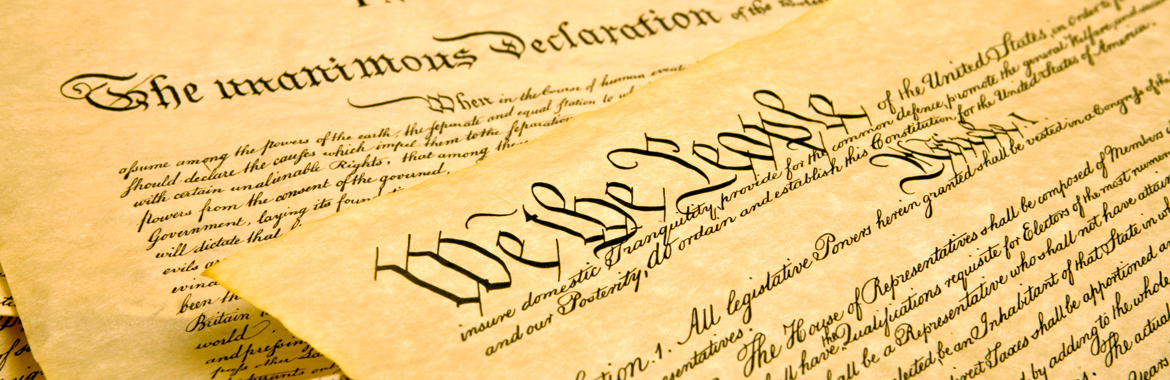 The unanimous Declaration of the
When in the Course of human event
assume among the powers of the earth, the separate and equal station to wh
should declare the causes which impel them to the separation
with certain unalienable Rights, that among the
powers from the consent of the governed,
Government, laying its foun
will dictate that
evils a
evinc
been th
Britain
world.
and
We the People of the United States, in Order to
insure domestic Tranquility, provide for the common defence, promote the general Welfare, and
and our Posterity, do ordain and establish this Constitution for the United States of America.
tion. 1. All legislative Powers herein granted shall be vested in a Congress of the
presentatives.
The House of Representatives shall be composed of Members
all have the Qualifications requisite for Electors of the most numerou
shall be a Representative who shall not have attain
elected be an Inhabitant of that State in wh
irect Taxes shall be apportioned a
by adding to the whole
The actual
Years